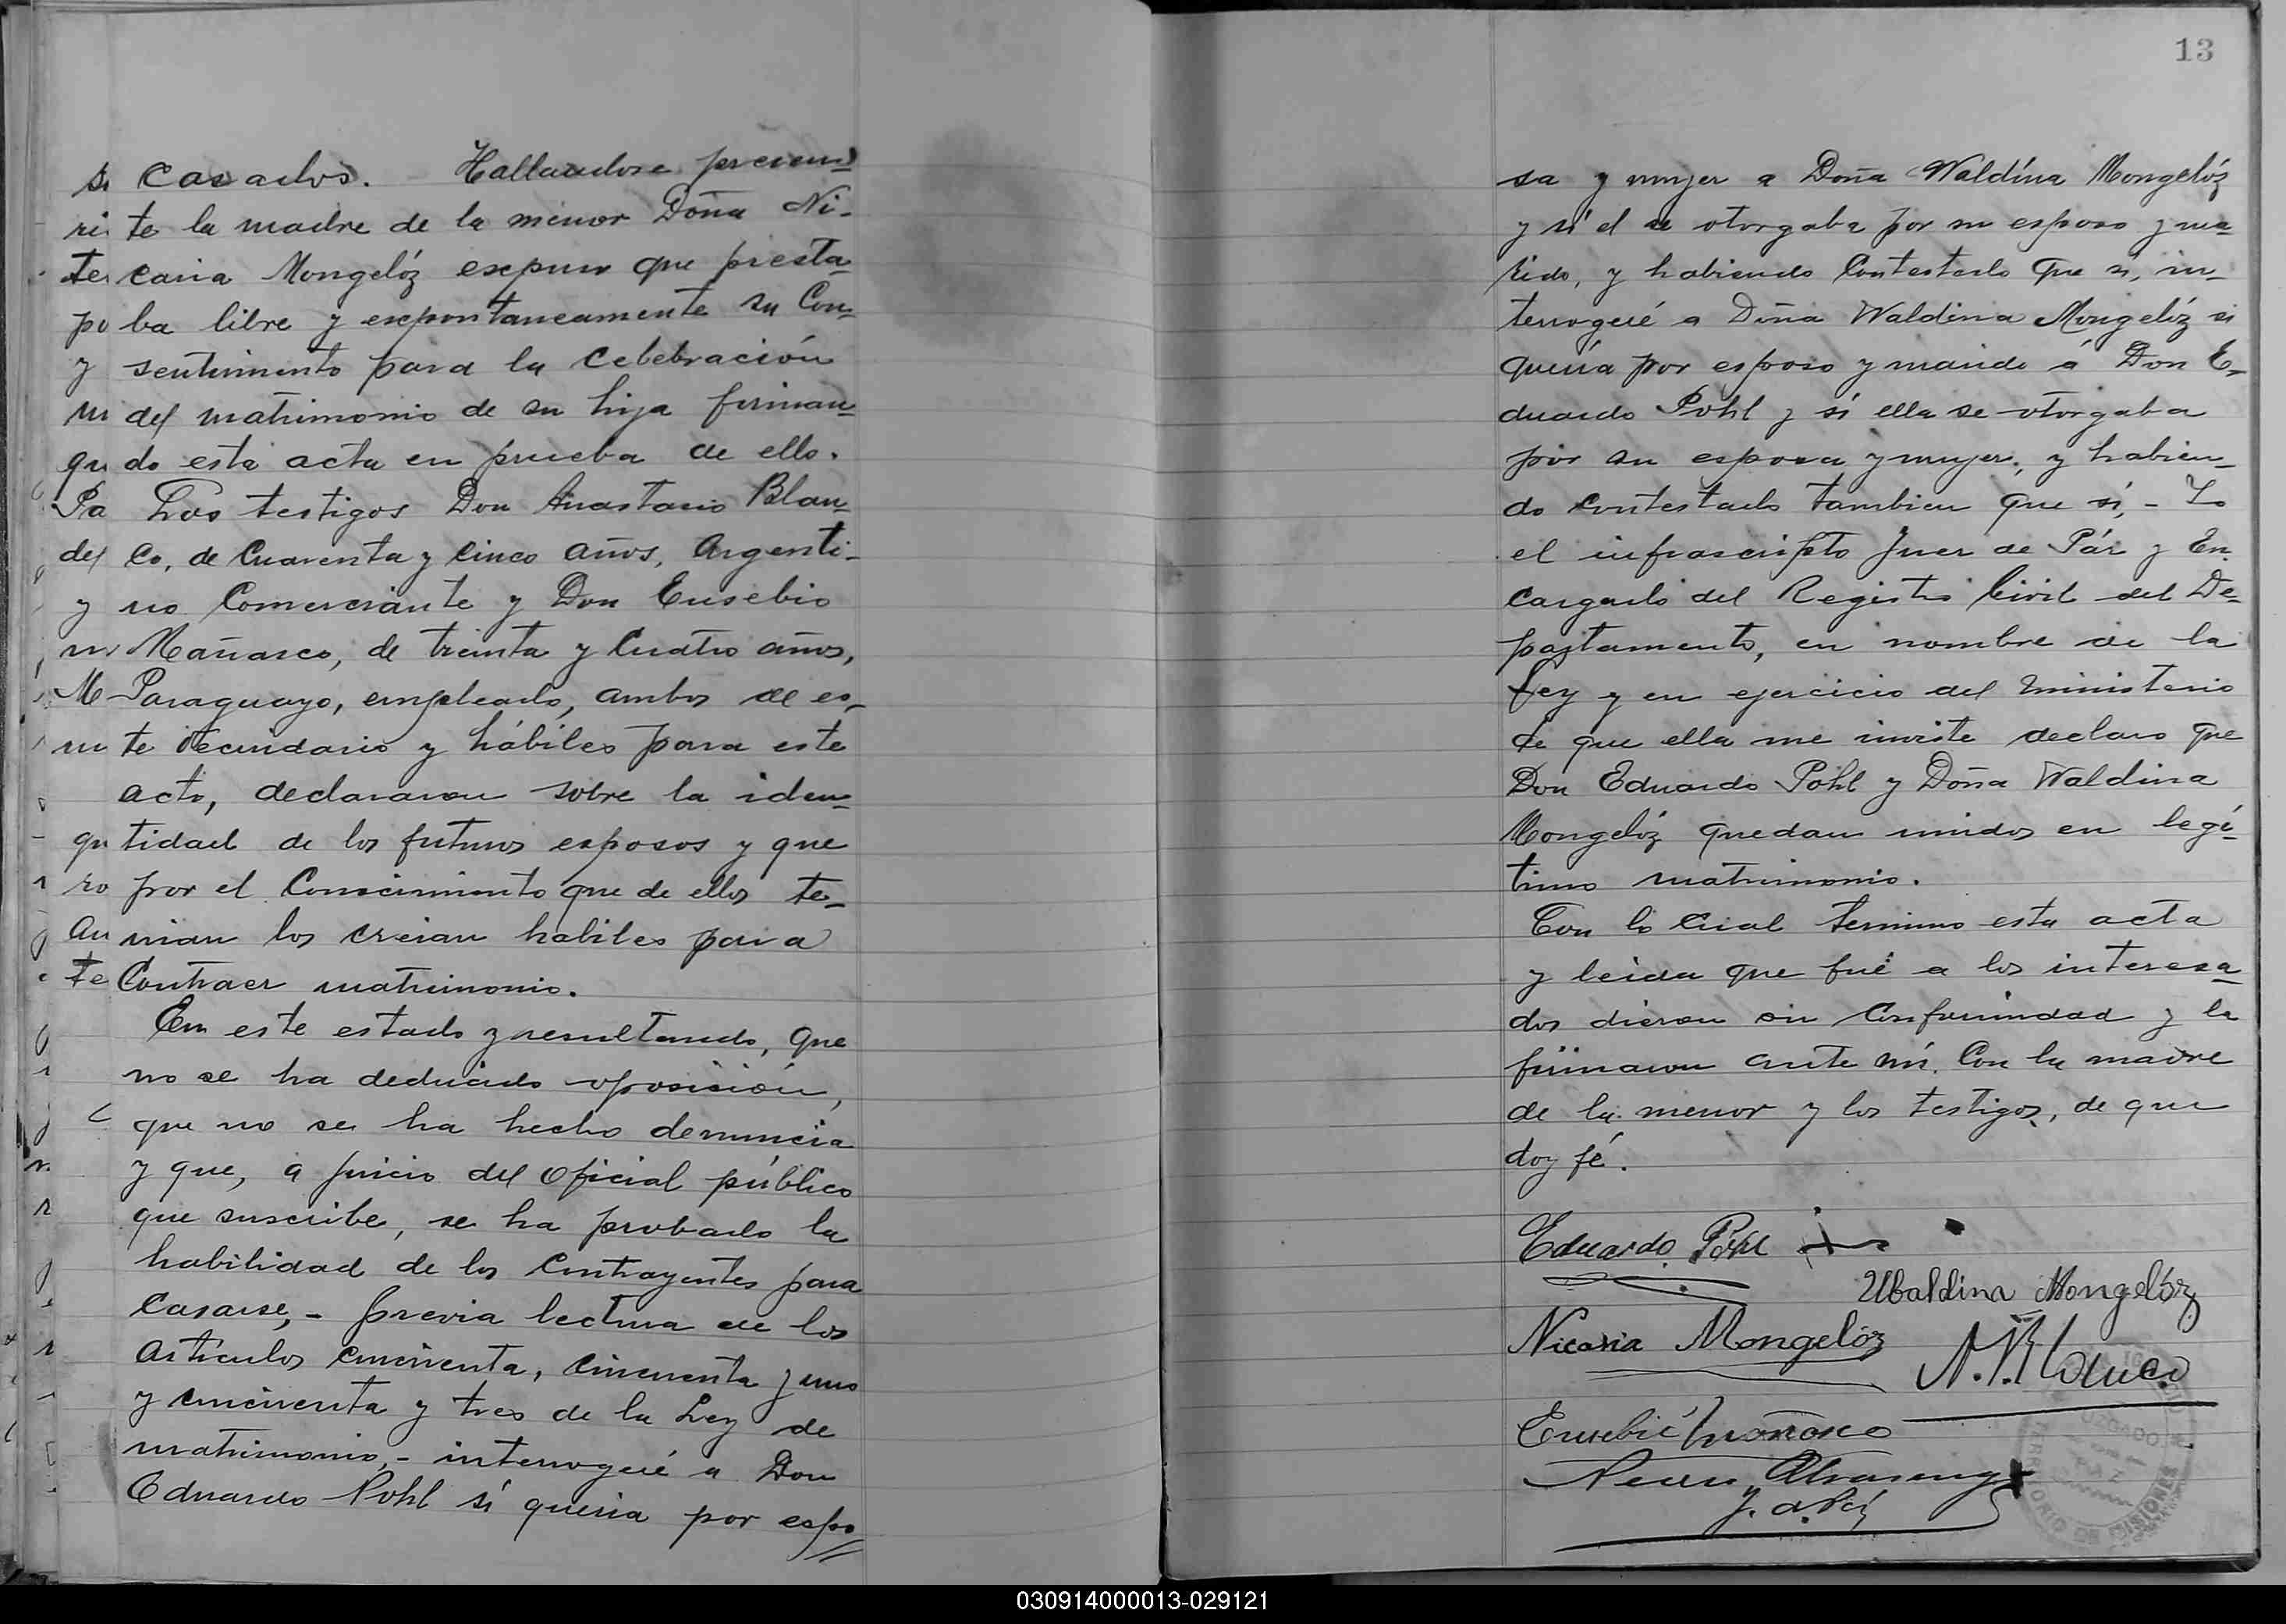 casados. Hallandose presen=
te la madre de la menor Doña Ni-
caria Mongelóz esepuso que presta=
ba libre y esepontaneamente su Con=
sentimento para la celebración
del matrimonio de su hija firman=
do esta acta en prueba de ello.
Los testigos Don Anastacio Blan=
co, de cuarenta y cinco años, Argenti-
no Comerciante y Don Eusebio
Mañasco, de treinta y Cuatro años,
Paraguayo, empleado, ambos de es-
te vecindario y hábiles para este
acto, declararon sobre la iden=
tidad de los futuros esposos y que
por el Conocimiento que de ellos te-
nian los creian habiles para
Contraer matrimonio.
En este estado y resultando, que
no se ha deducido oposición,
que no se ha hecho denuncia
y que, a juicio del oficial público
que suscribe, se ha probado la
habilidad de los Contrayentes para
Casarse,- previa lectura de los
Artículos cincuenta, cincuenta y uno
y cincuenta y tres de la Ley de
matrimonio,- interrogué a Don
Eduardo Pohl si queria por espo=
13
sa y mujer a Doña Waldína Mongelóz
y si el se otorgaba por su esposo y ma-
rido, y habiendo Contestado que si, in-
terrogué a Doña Waldina Mongelóz si
quería por esposo y marido á Don E-
duardo Pohl y si ella se otorgaba
por su esposa y mujer, y habien-
do contestado tambien que si,- Yo
el infrascripto Juez de Páz y En-
cargado del Registro Civil del De=
partamento, en nombre de la
Ley y en ejercicio del ministerio
de que ella me inviste declaro que
Don Eduardo Pohl y Doña Waldina
Mongelóz quedan unidos en legí=
timo matrimonio.
Con lo cual termino esta acta
y leida que fué a los interesa-
dos dieron su Conformidad y la
firmaron ante mí. Con la madre
de la menor y los testigos, de que
doy fé.
Eduardo Pohl
Ubaldina Mongelóz
Nicasia Mongelóz
A. Blanco
Eusebio Mañasco
J. de Paz
030914000013-029121